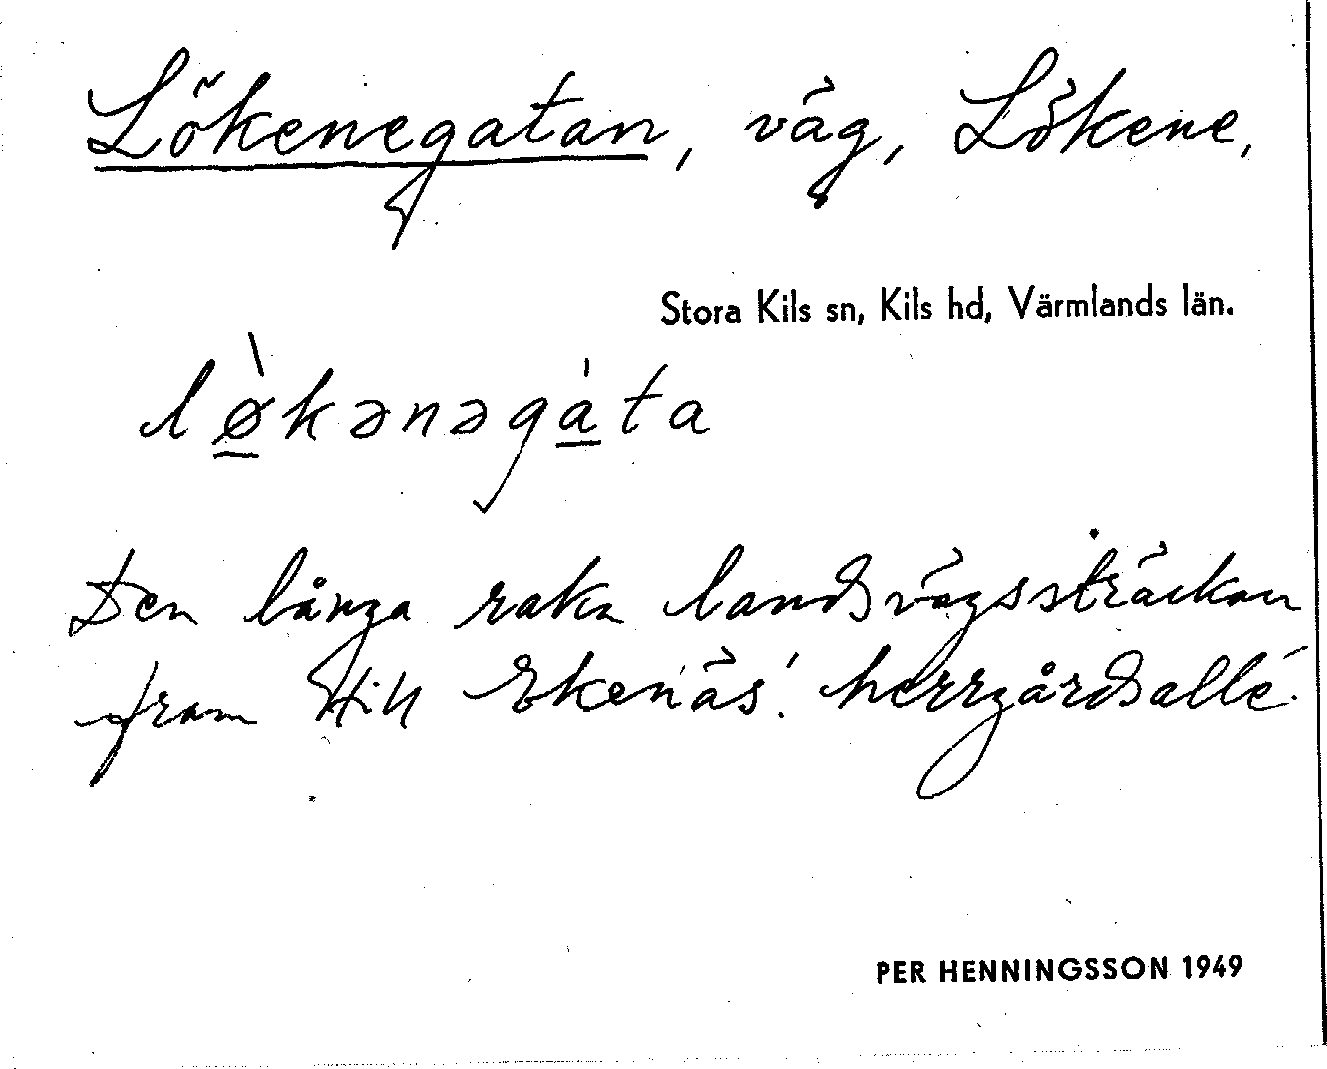 Lökenegatan, väg, Lökene,
Stora Kils sn, Kils hd, Värmlands län.
lø̲̀kənəga̲̍ta
Den långa raka landsvägssträckan
fram till Ekenäs' herrgårdsallé.
PER HENNINGSSON 1949